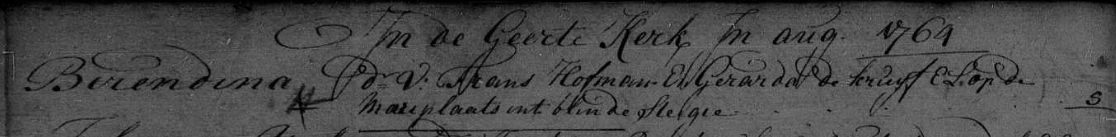 In de Geerte Kerk In aug. 1764
Berendina dr. v. Frans Hofman En Gerarda de Kruyf E.L. op de
Mariplaats int blinde Steegie
3